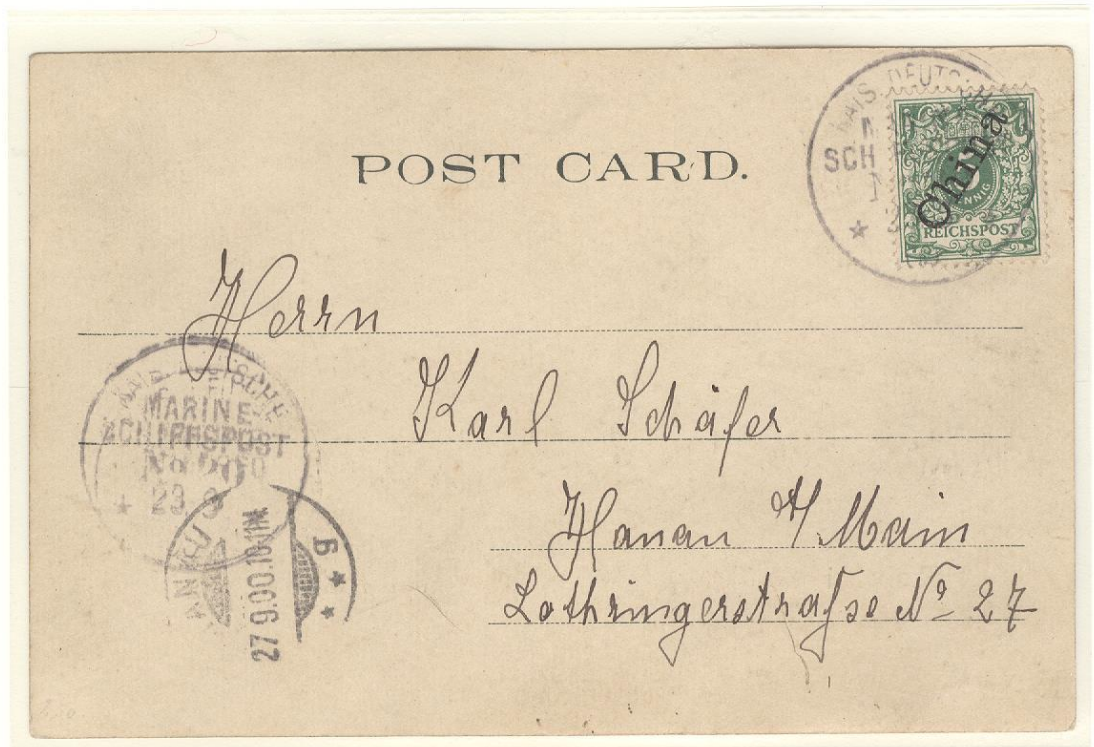 POST CARD.
KAIS. DEUTSCHE
SCH
China
PFENNIG
REICHSPOST
Herrn
Karl Schäfer
Hanau a/Main
Lothringerstraße No 27
KAIS. DEUTSCHE
MARINE-
SCHIFFSPOST
No
23
27 9.00.10-11N.